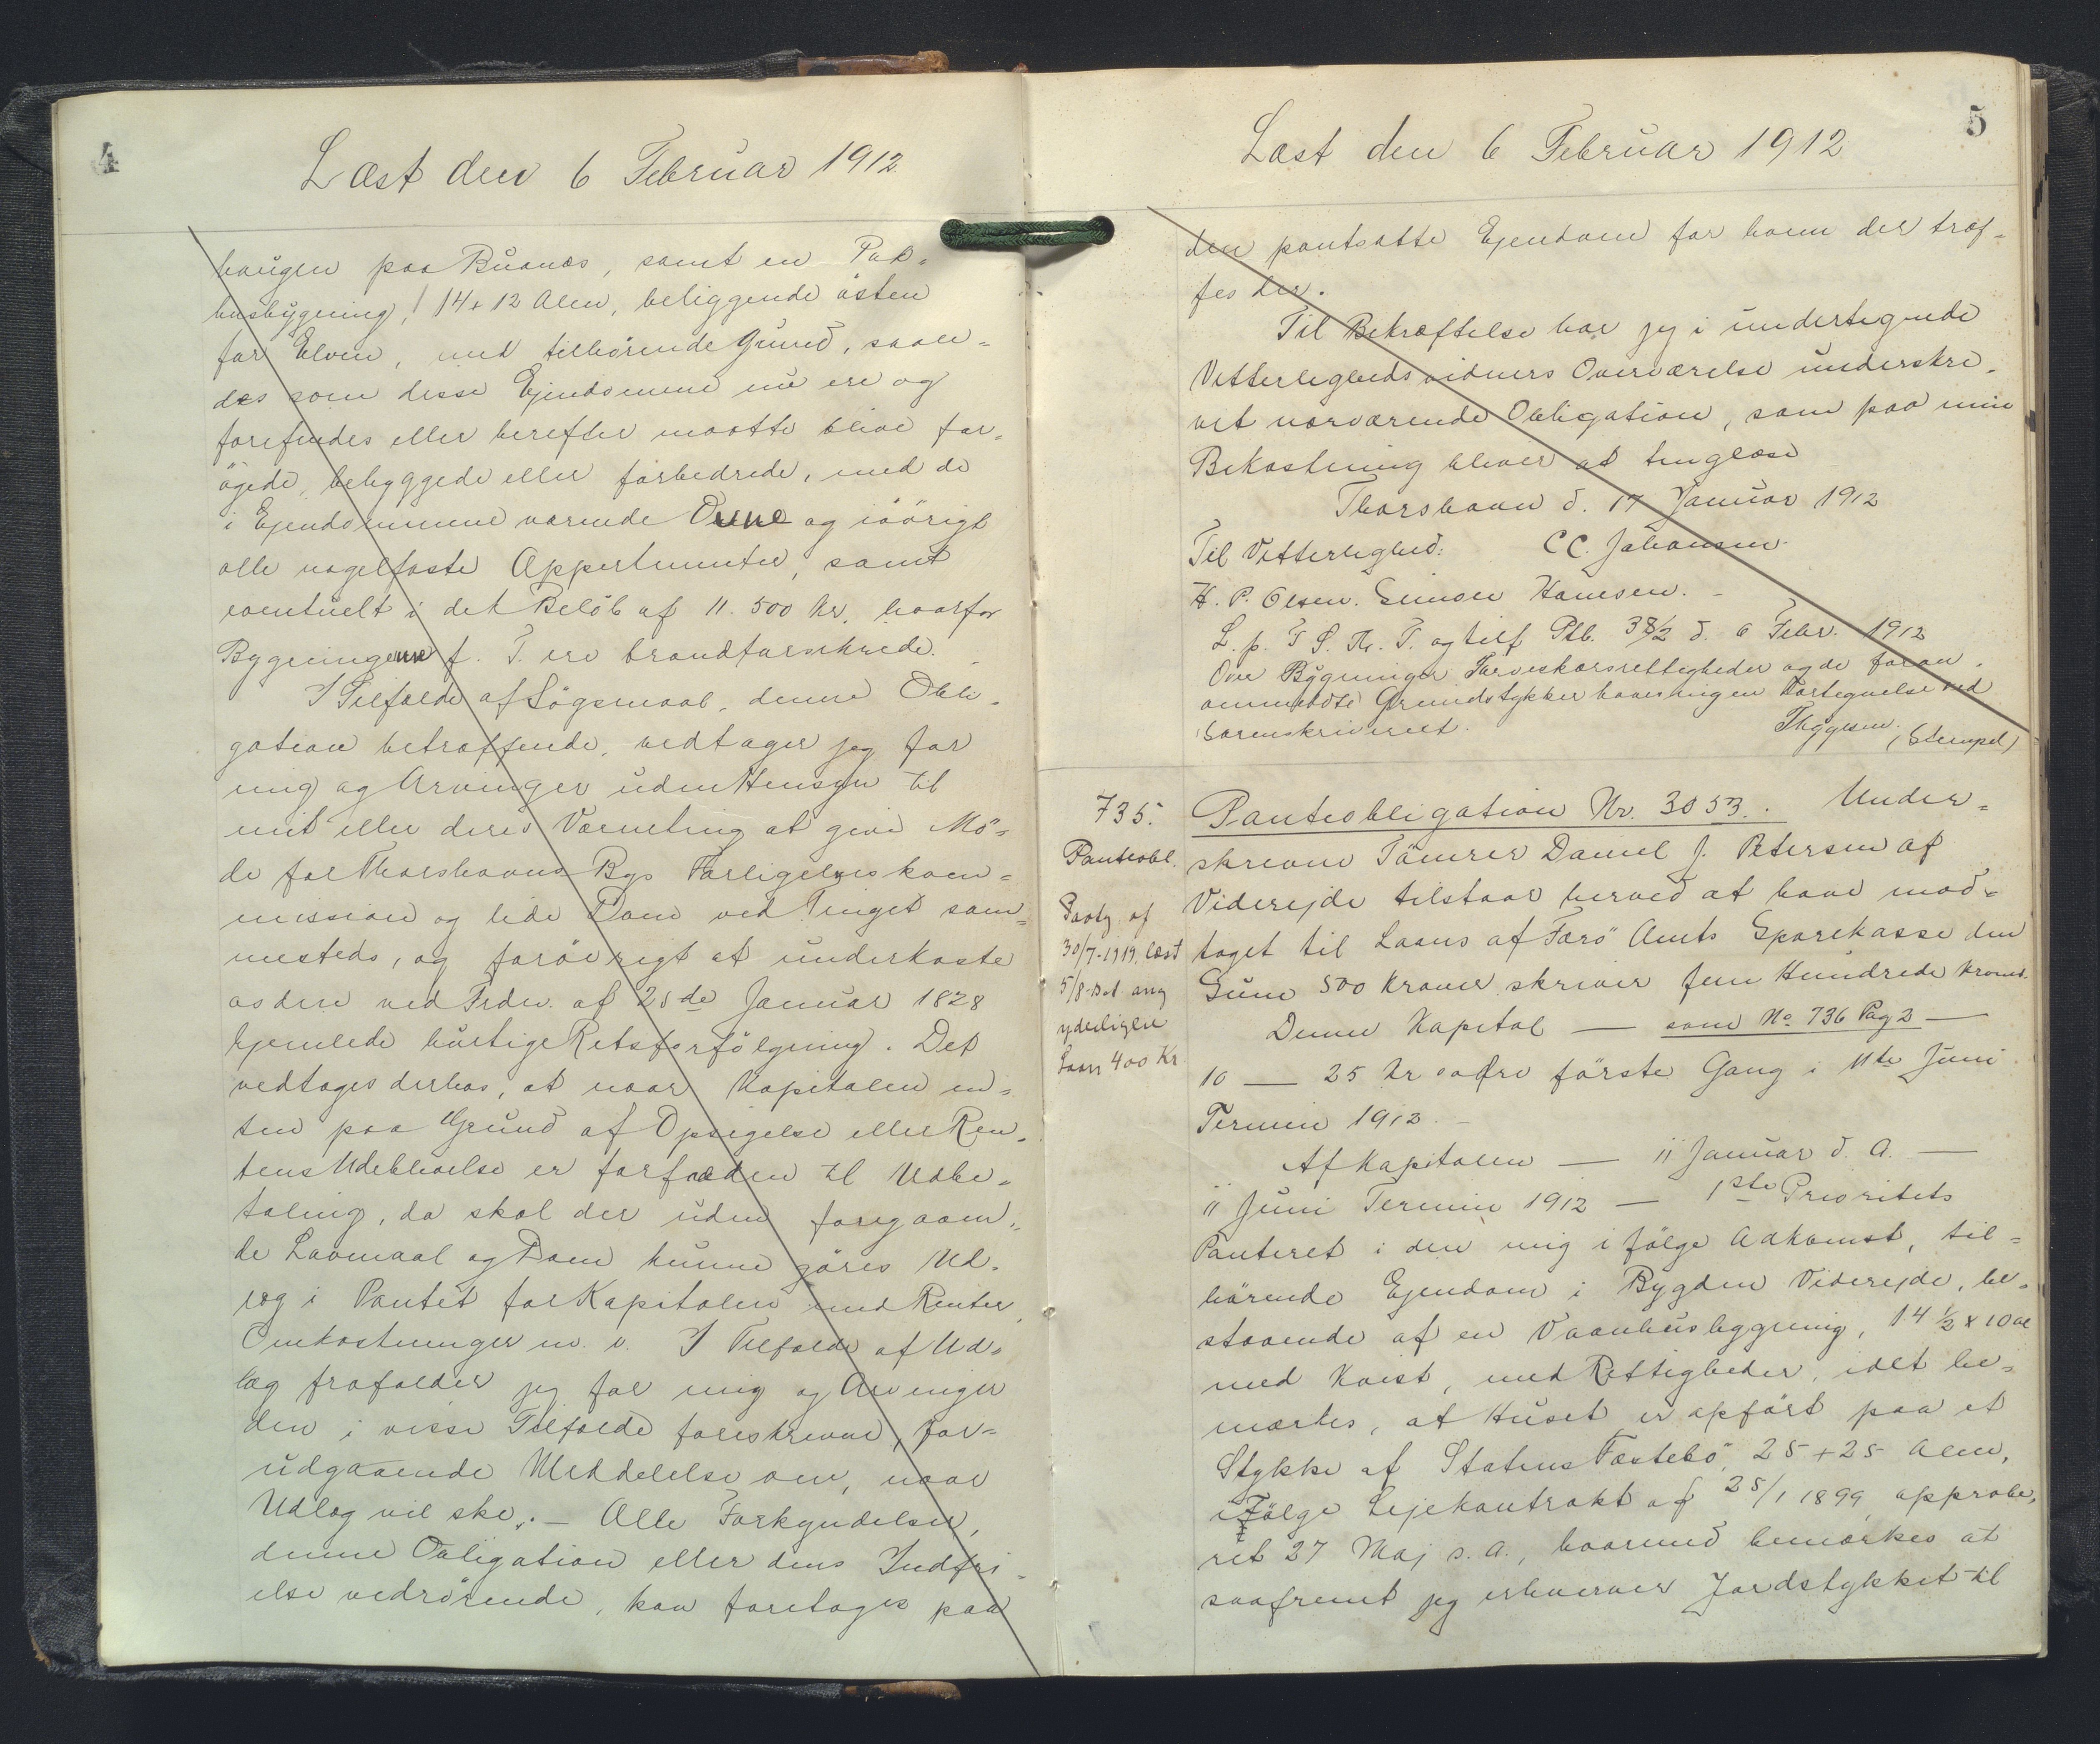 4
Læst den 6 Februar 1912
haugen paa Buanæs, samt en Pak-
husbygning, 14 + 12 Alen, beliggende östen
for Elven, med tilhörende Grund, saale-
des som disse Ejendomme nu ere og
forefindes eller herefter maatte blive for-
ögede, bebyggede eller forbedrede, med de
i Ejendommene værende Ovne og iövrigt
alle nagelfaste Appertinentier, samt
eventuelt i det Belöb af 11.500 Kr, hvorfor
Bygningerne f. T. ere brandforsikrede.
I Tilfælde af Sögsmaal, denne Obli-
gation betræffende, vedtager jeg for
mig og Arvinger uden Hensyn til
mit eller deres Værneting at give Mö-
de for Thorshavns Bys Forligelseskom-
mission og lide Dom ved Tinget sam-
mesteds, og foröevrigt at underkaste
os den ved Frdn. af 25de Januar 1828
hjemlede hurtige Retsforfölgning. Det
vedtages derhos, at naar Kapitalen en-
ten paa Grund af Opsigelse eller Ren-
tens Udeblivelse er forfalden til Udbe-
taling, da skal der uden foregaaen-
de Lavmaal og Dom kunne göres Ud-
læg i Pantet for Kapitalen med Renter,
Omkostninger m. v. I Tilfælde af Ud-
læg frafalder jeg for mig og Arvinger
den i visse Tilfælde foreskrevne, for-
udgaaende Meddelelse om, naar
Udlæg vil ske. - Alle Forkyndelser,
denne Obligation eller dens Indfri-
else vedrörende, kan foretages paa
5
Læst den 6 Februar 1912
den pantsatte Ejendom for hvem der træf-
fes der.
Til Bekræftelse har jeg i undertegnede
Vitterlighedsvidners Overværelse underskre-
vet nærværende Obligation, som paa min
Bekostning bliver at tinglæse
Thorshavn d. 17 Januar 1912
Til Vitterlighed: C C. Johansen.
H. P. Olsen. Hansen. -
L. p. T S. Kr. T. og tilf Ptb. 38/2 d. 6 Febr. 1912
Ovre Bygninger Tørveskærsrettigheder og de foran-
ommeldte Grundstykker haves ingen Vortegnelse ved
Sorenskriveriet. Thygesen. (Stempel)
735.
Panteobl.
Paateg af
30/7-1919, læst
5/8 s. A. ang
yderligere
Laan 400 Kr
Panteobligation Nr. 3053. Under-
skrevne Tömrer Daniel J. Petersen af
Viderejde tilstaar herved at have mod-
taget til Laans af Færö Amts Sparekasse den
Sum 500 Kroner skriver fem Hundrede Kroner.
Denne Kapital — som No 736 Pag 2 —
10 — 25 Kr 00 Öre förste Gang i 11te Juni
Termin 1912. -
Af Kapitalen — 11 Januar d. A. —
11 Juni Termin 1912 — 1ste Prioritets
Panteret i den mig i fölge Adkomst, til-
hörende Ejendom i Bygden Viderejde, be-
staaende af en Vaanhusbygning, 14 1/2 x 10 al
med Kvist, med Rettigheder, idet be-
mærkes, at Huset er opfört paa et
Stykke af Statens Fæstebö, 25 + 25 Alen,
i Fölge Lejekontrakt af 25/1 1899, approbe-
ret 27 Maj s. A., hvormed bemærkes at
saafremt jeg erhverver Jordstykket til